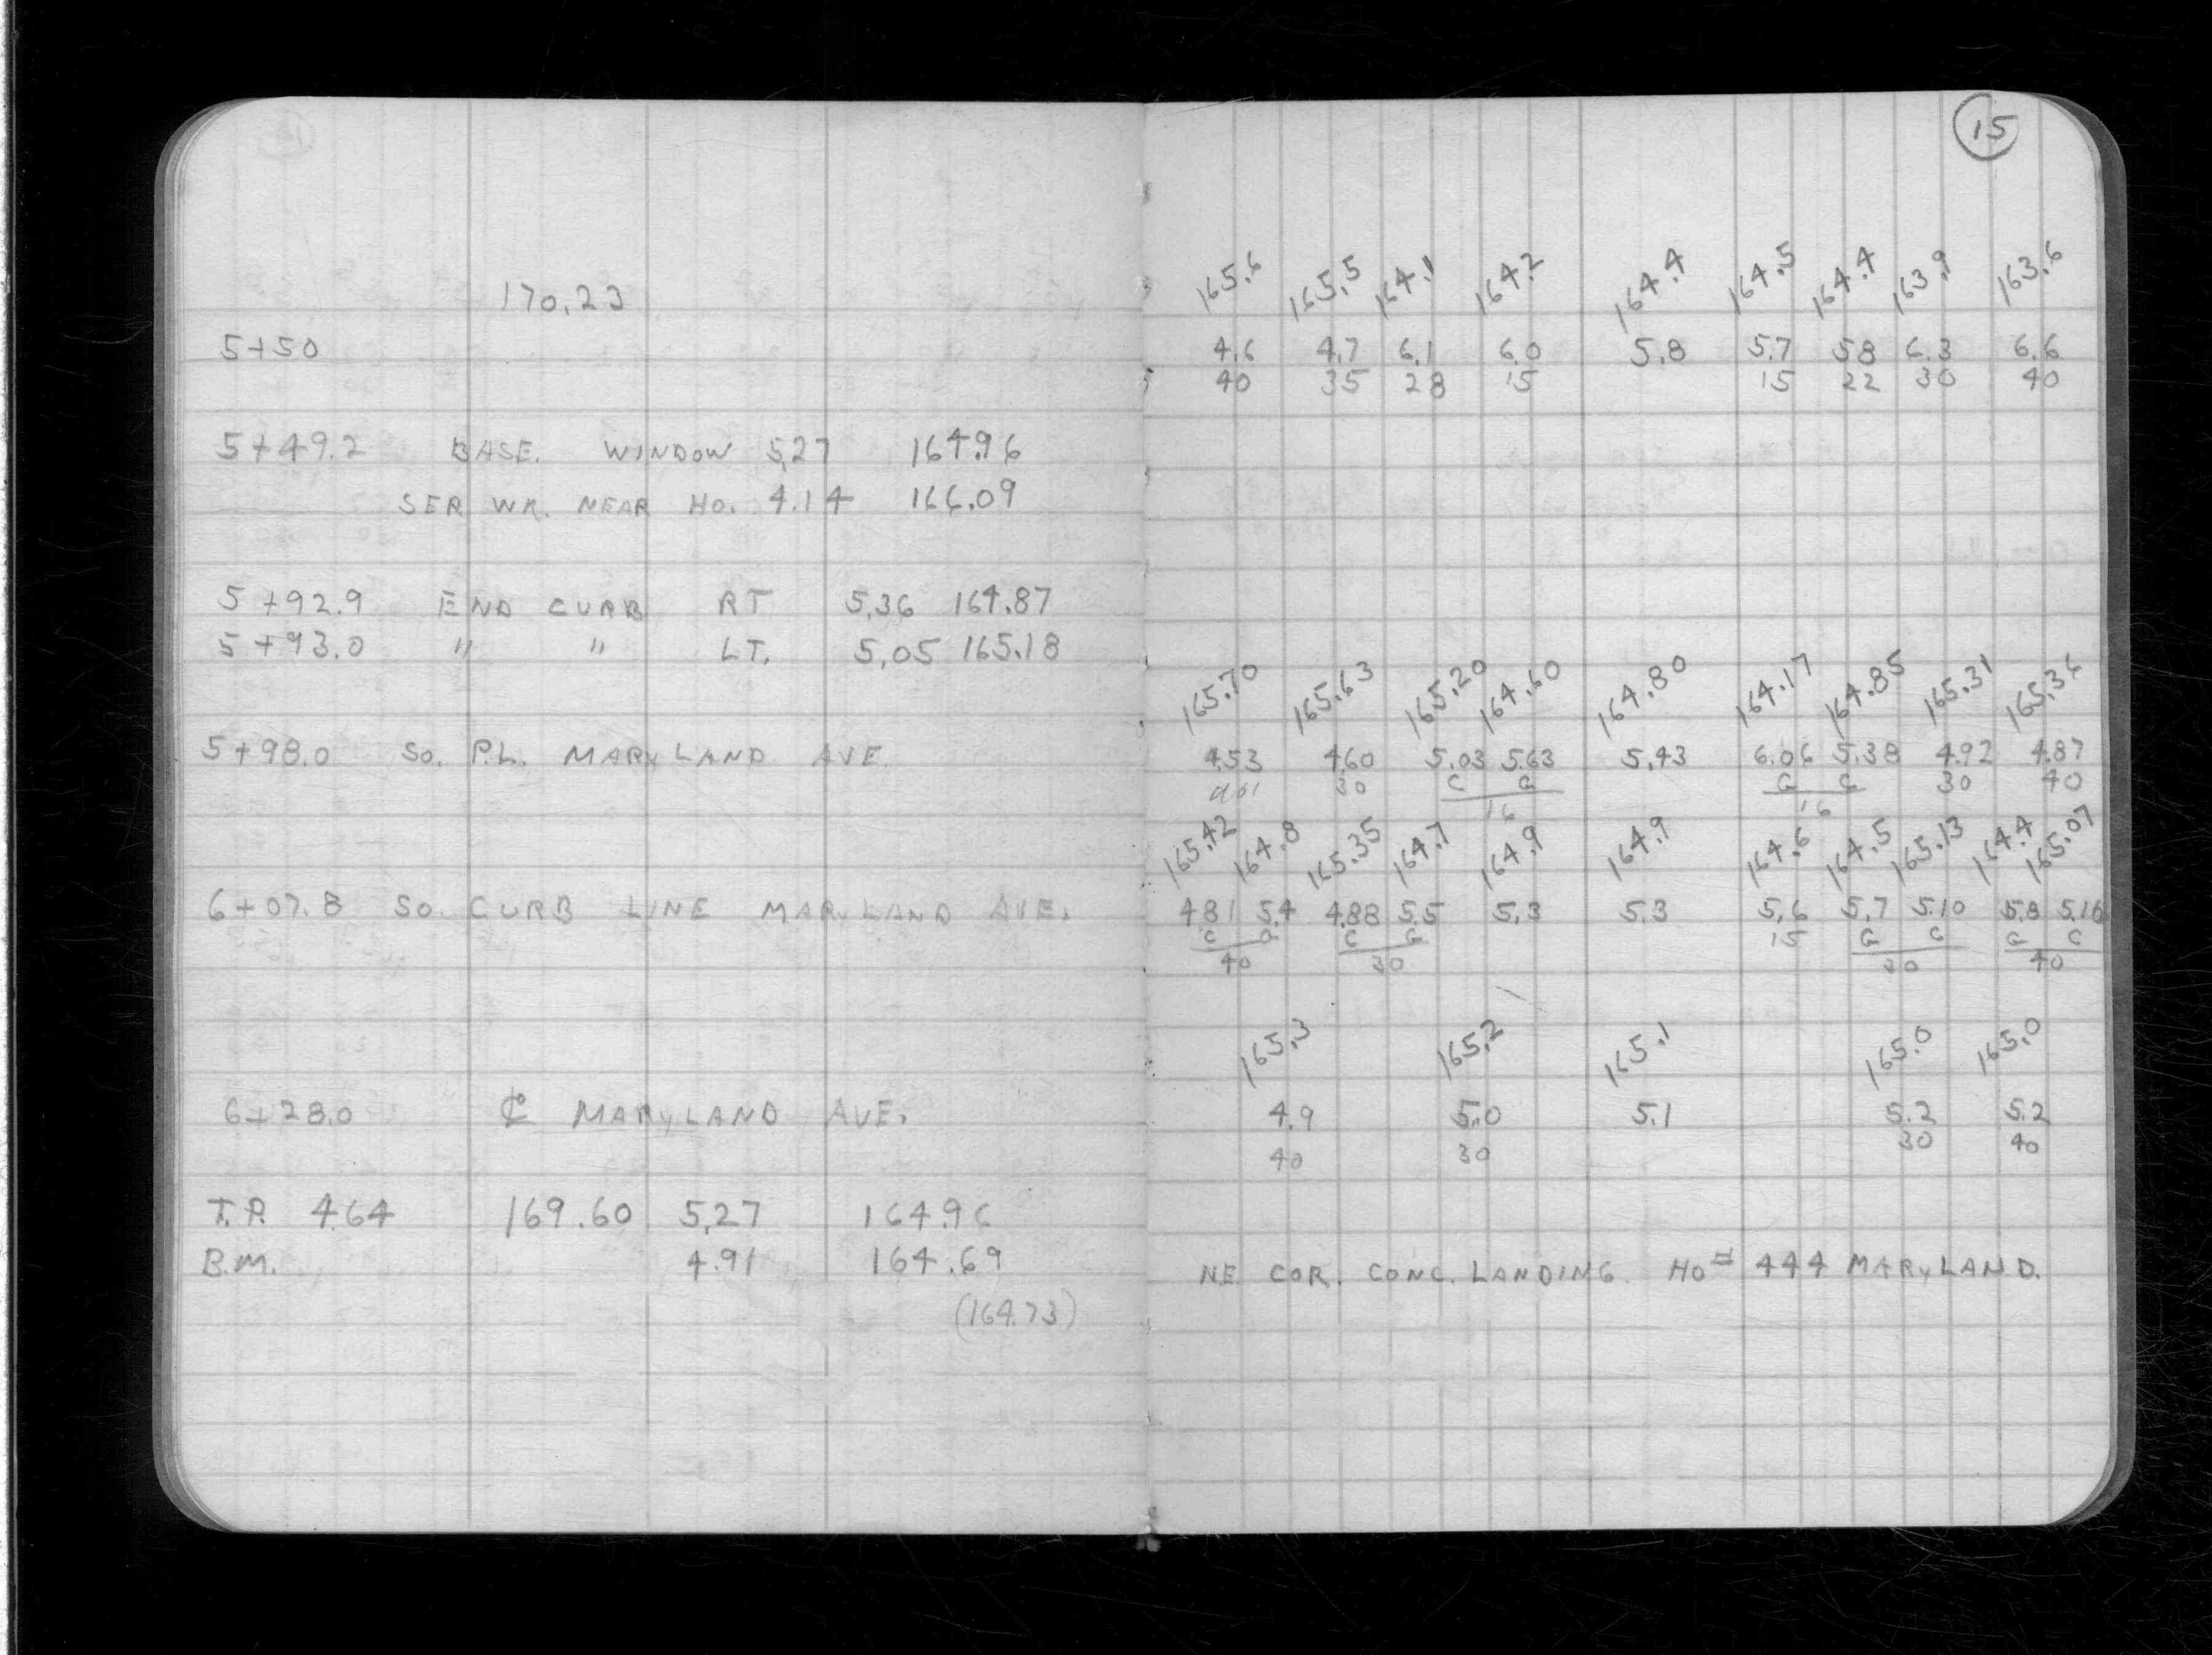 15
170.23
165.6 165.5 164.1 164.2 164.4 164.5 164.4 163.9 163.6
5+50 4.6 4.7 6.1 6.0 5.8 5.7 5.8 6.3 6.6
40 35 28 15 15 22 30 40
5+49.2 BASE. WINDOW 5.27 164.96
SER WK. NEAR HO. 4.14 166.09
5+92.9 END CURB RT 5.36 164.87
5+93.0 " " LT. 5.05 165.18
165.70 165.63 165.20 164.60 164.80 164.17 164.85 165.31 165.36
5+98.0 So. P.L. MARYLAND AVE 4.53 4.60 5.03 5.63 5.43 6.06 5.38 4.92 4.87
30 C G G C 30 40
16 16
165.42 164.8 165.35 164.7 164.9 164.9 164.6 164.5 165.13 164.4 165.07
6+07.8 SO. CURB LINE MARYLAND AVE. 4.81 5.4 4.88 5.5 5.3 5.3 5.6 5.7 5.10 5.8 5.16
C G C G 15 G C G C
40 30 30 40
165.3 165.2 165.1 165.0 165.0
6+28.0 ℄ MARYLAND AVE. 4.9 5.0 5.1 5.2 5.2
40 30 30 40
T.P. 4.64 169.60 5.27 164.96
B.M. 4.91 164.69 NE COR. CONC. LANDING HO # 444 MARYLAND.
(164.73)